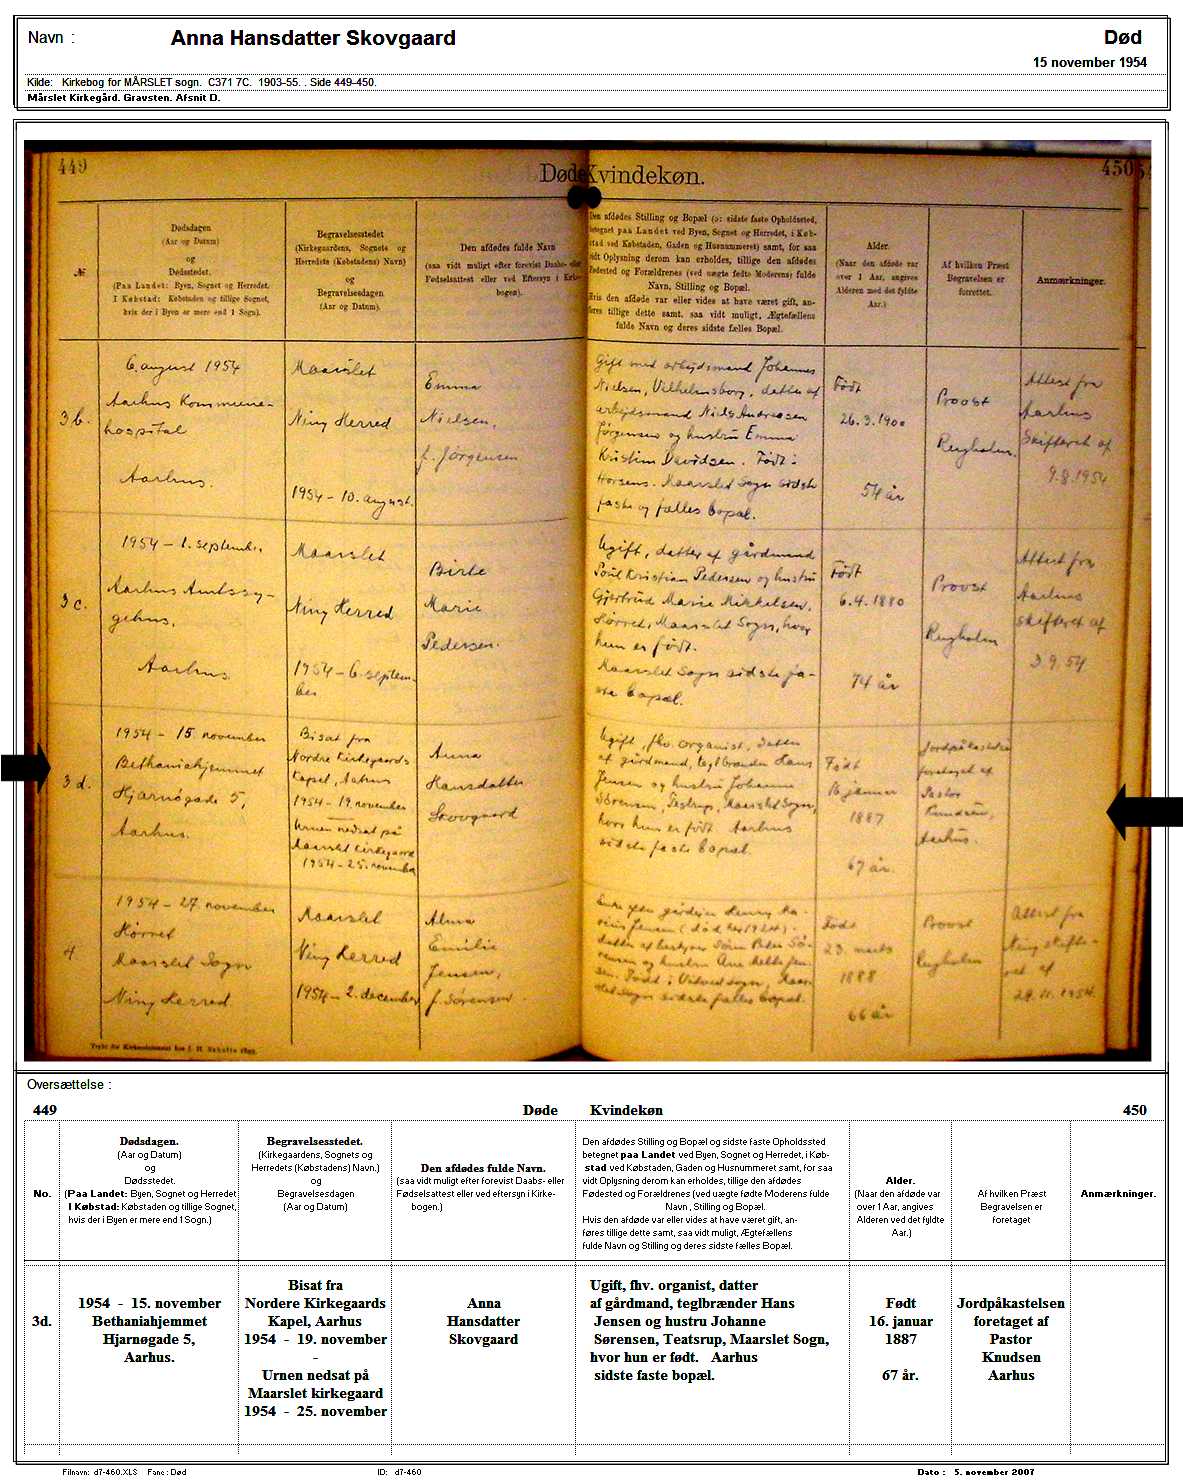 Navn : Anna Hansdatter Skovgaard Død
15 november 1954
Kilde: Kirkebog for MÅRSLET sogn. C371 7C. 1903-55. . Side 449-450.
Mårslet Kirkegård. Gravsten. Afsnit D.
449 Døde Kvindekøn. 450
Dødsdagen
(Aar og Datum)
og
Dødsstedet.
(Paa Landet: Byen, Sognet og Herredet.
I Købstad: Købstaden og tillige Sognet,
hvis der i Byen er mere end 1 Sogn).
Begravelsesstedet
(Kirkegaardens, Sognets og
Herredets (Købstadens) Navn)
og
Begravelsesdagen
(Aar og Datum).
Den afdødes fulde Navn
(saa vidt muligt efter forevist Daabs- eller
Fødselsattest eller ved Eftersyn i Kirke-
bogen).
Den afdødes Stilling og Bopæl (ɔ: sidste faste Opholdssted,
betegnet paa Landet ved Byen, Sognet og Herredet, i Køb-
stad ved Købstaden, Gaden og Husnummeret) samt, for saa
vidt Oplysning derom kan erholdes, tillige den afdødes
Fødested og Forældrenes (ved uægte fødte Moderens) fulde
Navn, Stilling og Bopæl.
Hvis den afdøde var eller vides at have været gift, an-
føres tillige dette samt, saa vidt muligt, Ægtefællens
fulde Navn og deres sidste fælles Bopæl.
Alder.
(Naar den afdøde var
over 1 Aar, angives
Alderen med det fyldte
Aar.)
Af hvilken Præst
Begravelsen er
forrettet.
Anmærkninger.
3b.
6. august 1954
Aarhus Kommune-
hospital
Aarhus.
Maarslet
Ning Herred
1954 - 10. august.
Emma
Nielsen,
f. Jørgensen
Gift med arbejdsmand Johannes
Nielsen, Vilhelmsborg, datter af
arbejdsmand Niels Andreasen
Jørgensen og hustru Emma
Kristine Davidsen. Født:
Horsens. Maarslet Sogn sidste
faste og fælles bopæl.
Født
26.3.1900
54 år
Provst
Rugholm.
Attest fra
Aarhus
Skifteret af
9.8.1954
3c.
1954 - 1. september.
Aarhus Amtssy-
gehus,
Aarhus
Maarslet
Ning Herred
1954 - 6. septem-
ber
Birte
Marie
Pedersen.
Ugift, datter af gårdmand
Poul Kristian Pedersen og hustru
Gjertrud Marie Mikkelsen,
Hørret, Maarslet Sogn, hvor
hun er født.
Maarslet Sogn sidste fa-
ste bopæl.
Født
6.4.1880
74 år
Provst
Rugholm
Attest fra
Aarhus
skifteret af
3.9.54
3d.
1954 - 15. november
Bethaniahjemmet
Hjarnøgade 5,
Aarhus.
Bisat fra
Nordre Kirkegaards
Kapel, Aarhus
1954 - 19. november
Urnen nedsat på
Maarslet Kirkegaard
1954 - 25. november
Anna
Hansdatter
Skovgaard
Ugift, fhv. organist, datter
af gårdmand, teglbrænder Hans
Jensen og hustru Johanne
Sørensen, Testrup, Maarslet Sogn,
hvor hun er født. Aarhus
sidste faste bopæl.
Født
16 januar
1887
67 år.
Jordpåkastelse
foretaget af
Pastor
Knudsen,
Aarhus.
4
1954 - 27. november
Hørret
Maarslet Sogn
Ning Herred
Maarslet
Ning Herred
1954 - 2. december
Alma
Emilie
Jensen,
f. Sørensen
Enke efter gårdejer Henry Ma-
rius Jensen
datter af Søren Peter Sø-
rensen og hustru Ane Mette Jen-
sen. Født i sogn, Maar-
slet sogn sidste fælles bopæl.
Født
23. marts
1888
66 år
Provst
Rugholm
Attest fra
Ning skifte-
ret af
29.11.1954.
Oversættelse :
449 Døde Kvindekøn 450
No.
Dødsdagen.
(Aar og Datum)
og
Dødsstedet.
(Paa Landet: Byen, Sognet og Herredet
I Købstad: Købstaden og tillige Sognet,
hvis der i Byen er mere end 1 Sogn.)
Begravelsesstedet.
(Kirkegaardens, Sognets og
Herredets (Købstadens) Navn.)
og
Begravelsesdagen
(Aar og Datum)
Den afdødes fulde Navn.
(saa vidt muligt efter forevist Daabs- eller
Fødselsattest eller ved eftersyn i Kirke-
bogen.)
Den afdødes Stilling og Bopæl og sidste faste Opholdssted
betegnet paa Landet ved Byen, Sognet og Herredet, i Køb-
stad ved Købstaden, Gaden og Husnummeret samt, for saa
vidt Oplysning derom kan erholdes, tillige den afdødes
Fødested og Forældrenes (ved uægte fødte Moderens fulde
Navn , Stilling og Bopæl.
Hvis den afdøde var eller vides at have været gift, an-
føres tillige dette samt, saa vidt muligt, Ægtefællens
fulde Navn og Stilling og deres sidste fælles Bopæl.
Alder.
(Naar den afdøde var
over 1 Aar, angives
Alderen ved det fyldte
Aar.)
Af hvilken Præst
Begravelsen er
foretaget
Anmærkninger.
3d.
1954 - 15. november
Bethaniahjemmet
Hjarnøgade 5,
Aarhus.
Bisat fra
Nordere Kirkegaards
Kapel, Aarhus
1954 - 19. november
-
Urnen nedsat på
Maarslet kirkegaard
1954 - 25. november
Anna
Hansdatter
Skovgaard
Ugift, fhv. organist, datter
af gårdmand, teglbrænder Hans
Jensen og hustru Johanne
Sørensen, Teatsrup, Maarslet Sogn,
hvor hun er født. Aarhus
sidste faste bopæl.
Født
16. januar
1887
67 år.
Jordpåkastelsen
foretaget af
Pastor
Knudsen
Aarhus
Filnavn: d7-460.XLS Fane : Død ID: d7-460 Dato : 5. november 2007